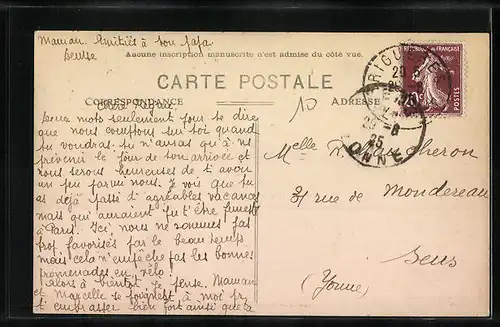 Maman. Amitiés à ton papa
Aucune inscription manuscrite n'est admise du côté vue.
CARTE POSTALE
CORRESPONDANCE
ADRESSE
10
REPUBLIQUE FRANÇAISE
POSTES
Deux mots seulement pour te dire
que nous comptons sur toi quand
tu voudras. Tu n'auras qu'à nous
prévenir le jour de ton arrivée et
nous serons heureuses de t'avoir
un peu parmi nous. Je vois que tu
as déjà passé d'agréables vacances
mais qui auraient pu t'être funestes
à Paris. Ici, nous ne sommes pas
trop favorisés par le beau temps
mais cela n'empêche pas les bonnes
promenades en vélo.
Alors à bientôt je pense. Maman
et Marcelle se joignent à moi pr
t'embrasser bien fort ainsi que ta
Melle R.
31 rue de Mondereau
Sens
(Yonne)